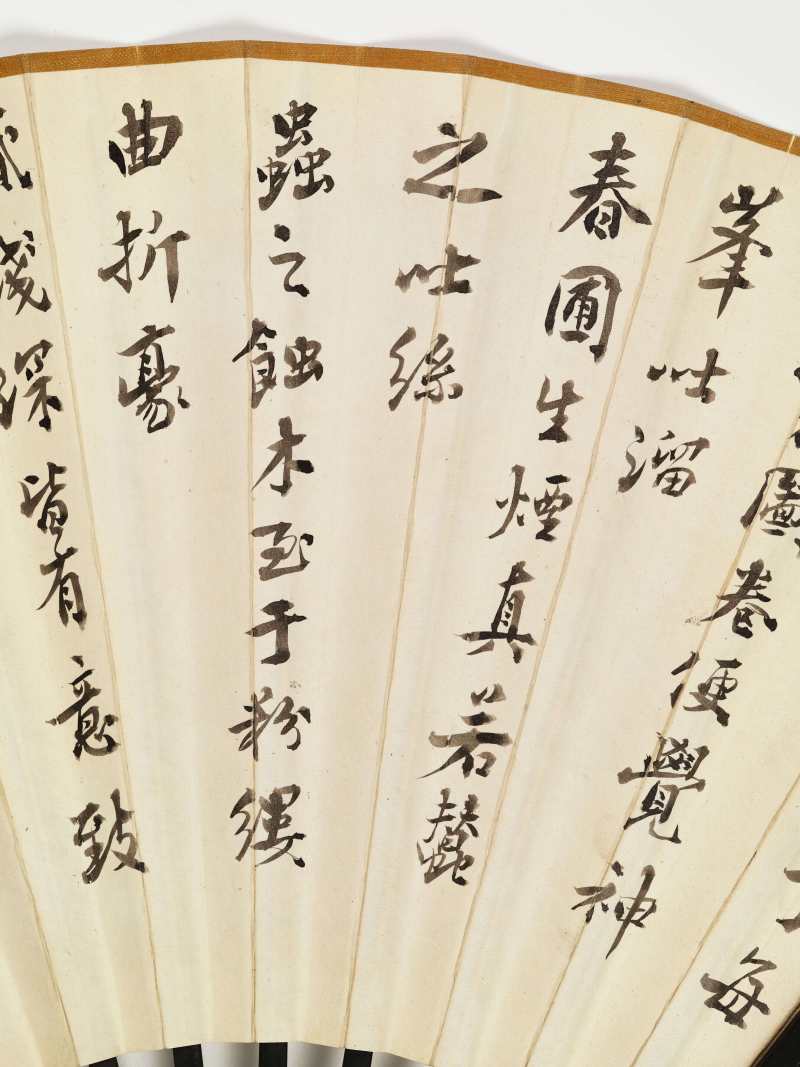 每
圖卷便覺神
峯吐溜
春圃生煙真若蠶
之吐絲
蟲之蝕木至于粉縷
曲折豪
淺深皆有意致